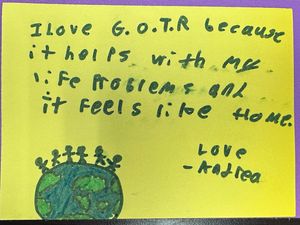 I Love G.O.T.R because
it helps with my
life Problems and
it feels like Home.
Love
-Andrea